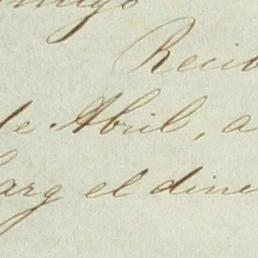 migo
Recib
de Abril, a
arg el dine